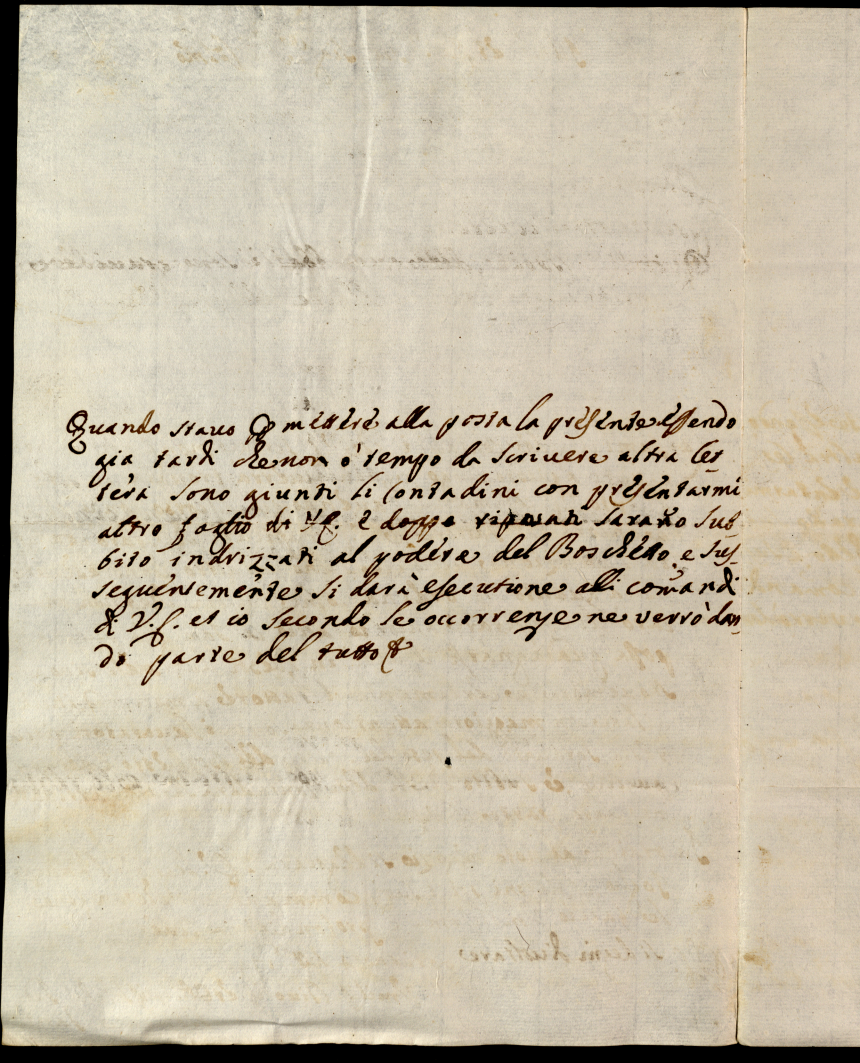 Quando stavo p mettere alla posta la presente essendo
gia tardi che non ò tempo da scrivere altra let
tera sono giunti li contadini con presentarmi
altro foglio di V.S. e doppo sarano sub
bito indrizzati al podere del Boschetto, e sus
seguentemente si darà esecutione alli comandi
di V.S. et io secondo le occorrenze ne verrò dan
do parte del tutto &